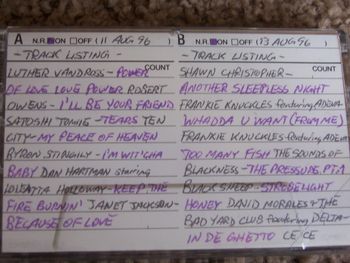 A N.R. ON OFF (11 AUG 96)
- TRACK LISTING -
COUNT
LUTHER VANDROSS - POWER
OF LOVE LOVE POWER ROBERT
OWENS - I'LL BE YOUR FRIEND
SATOSHI TOMIIE - TEARS TEN
CITY - MY PEACE OF HEAVEN
BYRON STINGILY - I'M WIT'CHA
BABY DAN HARTMAN starring
LOLEATTA HOLLOWAY - KEEP THE
FIRE BURNIN' JANET JACKSON -
BECAUSE OF LOVE
B N.R. ON OFF (13 AUG 96)
- TRACK LISTING -
COUNT
SHAWN CHRISTOPHER -
ANOTHER SLEEPLESS NIGHT
FRANKIE KNUCKLES featuring ADEVA -
WHADDA U WANT (FROM ME)
FRANKIE KNUCKLES featuring ADEVA -
TOO MANY FISH THE SOUNDS OF
BLACKNESS - THE PRESSURE, PT.1
BLACK SHEEP - STROBELIGHT
HONEY DAVID MORALES & THE
BAD YARD CLUB featuring DELTA -
IN DE GHETTO CE CE